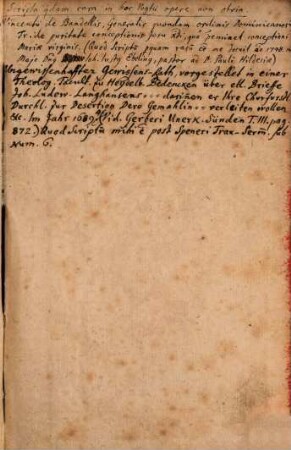 Scripta quædam rara in hoc Pogtu opere non obvia.
Vincentii de Bandellis, Generalis quondam ordinis Dominicanor.
Tr. de puritate conceptionis
Mariæ virginis. (Quod Scriptu
Maje Joh. Justg Ebeling, pastor ad D. Pauli Hildesiæ)
Ungewissenhafften Gewissens-Rath, vorgestellet in einer
Theolog. Facult. zu Heydelb. Bedencken über etl. Brieffe
Joh. Ludew. Langhansens - - - darinen er Ihre Churfürstl.
Durchl. zur Desertion Dero Gemahlin - - - verleiten wollen
etc. Im Jahr 1689. (Vid. Gerberi Unerk. Sünden T. III. pag.
872.) Quod Scriptu mihi e post Speneri Trau-Serm. sub
Num. 6.